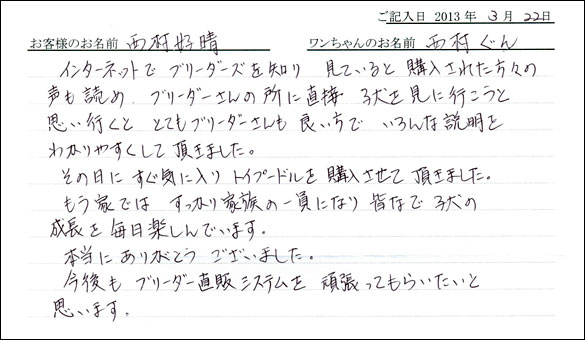 ご記入日 2013 年 3 月 22日
お客様のお名前 西村好晴 ワンちゃんのお名前 西村ぐん
インターネットで ブリーダーズを知り 見ていると 購入された方々の
声も読め ブリーダーさんの所に直接 子犬を見に行こうと
思い行くと とてもブリーダーさんも 良い方で いろんな説明を
わかりやすくして頂きました。
その日に すぐ気に入り トイプードルを 購入させて 頂きました。
もう家では すっかり家族の一員になり 皆なで 子犬の
成長を毎日楽しんでいます。
本当に ありがとう ございました。
今後も ブリーダー直販システムを 頑張ってもらいたいと
思います。